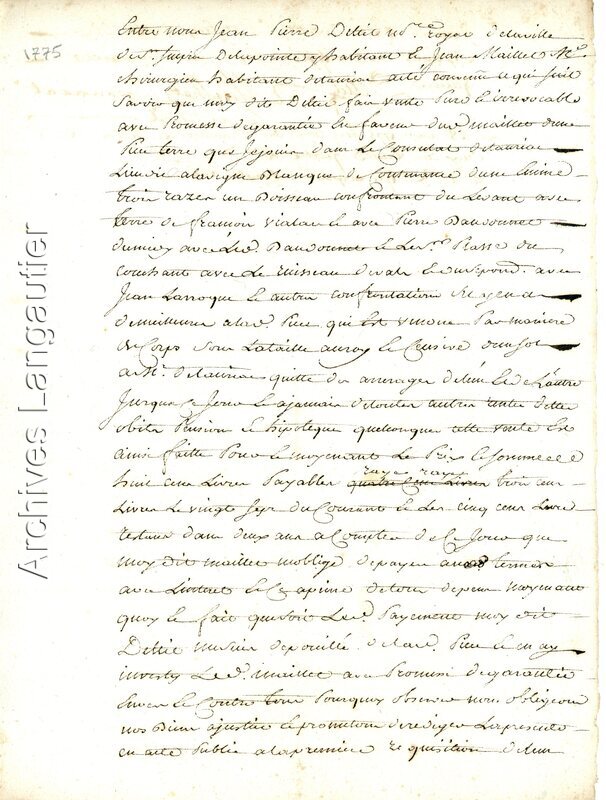 1775
Entre nous Jean Pierre Deltil no.re royal de la ville
de St. Supin Delapointe y habitant et Jean Maillet Me.
chirurgien habitant delauriac a été convenu ce qui suit
Savoir que moy dit Deltil fait vente pure et irrevocable
avec promesse de garantie en faveur dud. maillet d'une
Piece terre que je jouis dans le Consulat delauriac
Lieu dit alavigne blanque de Contenance d'une
trois razes un Boisseau confrontant du Levant avec
terre de et avec Pierre Daudonnet
du midy avec led. Daudonnet et le Sr. Passe du
couchant avec le ruisseau de et du avec
Jean Larroque et autres confrontations
lad. Piece qui est vendue Par maniere
de Corps Sous La taille au roy et Censive
a Mr. delauriac quitte des arrerages de l'un et de l'autre
Jusques a ce Jour et ajamais de toutes autres rente dette
obits Pension et hipoteque quelconques cette vente est
ainsi faitte Pour et moyenant le Prix et somme de
huit cens Livres Payables raye raye quatre Cens Livres trois cens
Livres le vingt du Courant et les cinq cens Livres
restans dans deux ans a Compter de Ce Jour que
moy dit maillet m'oblige de payer aux d. termes
avec L'interet et a peine de tous depens moyenant
quoy et fait que soit Led. Payement moy dit
Deltil me suis depouillé de lad. Piece et en ay
investy Led. maillet avec Promesse de garantie
Envers et Contre tous Pourquoy observer nous obligeons
nos Biens et promettons de rediger La presente
en acte Public a la premiere requisition de l'un
Archives Langautier